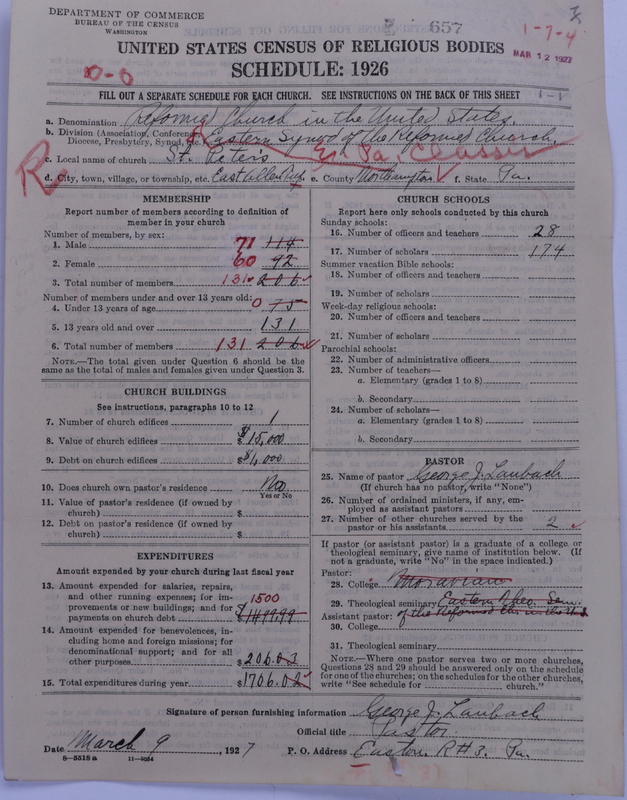 DEPARTMENT OF COMMERCE
BUREAU OF THE CENSUS
WASHINGTON
657
1-7-4
MAR 12 1927
UNITED STATES CENSUS OF RELIGIOUS BODIES
SCHEDULE: 1926
0-0
FILL OUT A SEPARATE SCHEDULE FOR EACH CHURCH. SEE INSTRUCTIONS ON THE BACK OF THIS SHEET
1-1
a. Denomination Reformed Church in the United States.
b. Division (Association, Conference, Diocese, Presbytery, Synod, etc.) Eastern Synod of the Reformed Church.
R
E. Pa. Classis
c. Local name of church St. Peters
d. City, town, village, or township, etc. East Allen Twp. e. County Northampton f. State Pa.
MEMBERSHIP
Report number of members according to definition of member in your church
Number of members, by sex:
1. Male 71 114
2. Female 60 92
3. Total number of members 131 206
Number of members under and over 13 years old:
4. Under 13 years of age 0 75
5. 13 years old and over 131
6. Total number of members 131 206
NOTE.—The total given under Question 6 should be the same as the total of males and females given under Question 3.
CHURCH BUILDINGS
See instructions, paragraphs 10 to 12
7. Number of church edifices 1
8. Value of church edifices $15,000
9. Debt on church edifices $1,000
10. Does church own pastor's residence No
Yes or No
11. Value of pastor's residence (if owned by church) $
12. Debt on pastor's residence (if owned by church) $
EXPENDITURES
Amount expended by your church during last fiscal year
13. Amount expended for salaries, repairs, and other running expenses; for improvements or new buildings; and for payments on church debt 1500 $1499.99
14. Amount expended for benevolences, including home and foreign missions; for denominational support; and for all other purposes $206.03
15. Total expenditures during year $1706.02
CHURCH SCHOOLS
Report here only schools conducted by this church
Sunday schools:
16. Number of officers and teachers 28
17. Number of scholars 174
Summer vacation Bible schools:
18. Number of officers and teachers
19. Number of scholars
Week-day religious schools:
20. Number of officers and teachers
21. Number of scholars
Parochial schools:
22. Number of administrative officers
23. Number of teachers—
a. Elementary (grades 1 to 8)
b. Secondary
24. Number of scholars—
a. Elementary (grades 1 to 8)
b. Secondary
PASTOR
25. Name of pastor George J. Laubach
(If church has no pastor, write "None")
26. Number of ordained ministers, if any, employed as assistant pastors
27. Number of other churches served by the pastor or his assistants 2
If pastor (or assistant pastor) is a graduate of a college or theological seminary, give name of institution below. (If not a graduate, write "No" in the space indicated.)
Pastor:
28. College Moravian
29. Theological seminary Eastern Theo. Sem.
Assistant pastor: of the Reformed Ch. in the U.S.
30. College
31. Theological seminary
NOTE.—Where one pastor serves two or more churches, Questions 28 and 29 should be answered only on the schedule for one of the churches; on the schedules for the other churches, write "See schedule for church."
Signature of person furnishing information George J. Laubach
Official title Pastor
Date March 9, 1927 P. O. Address Easton, R#3. Pa.
8-5518a 11-9054